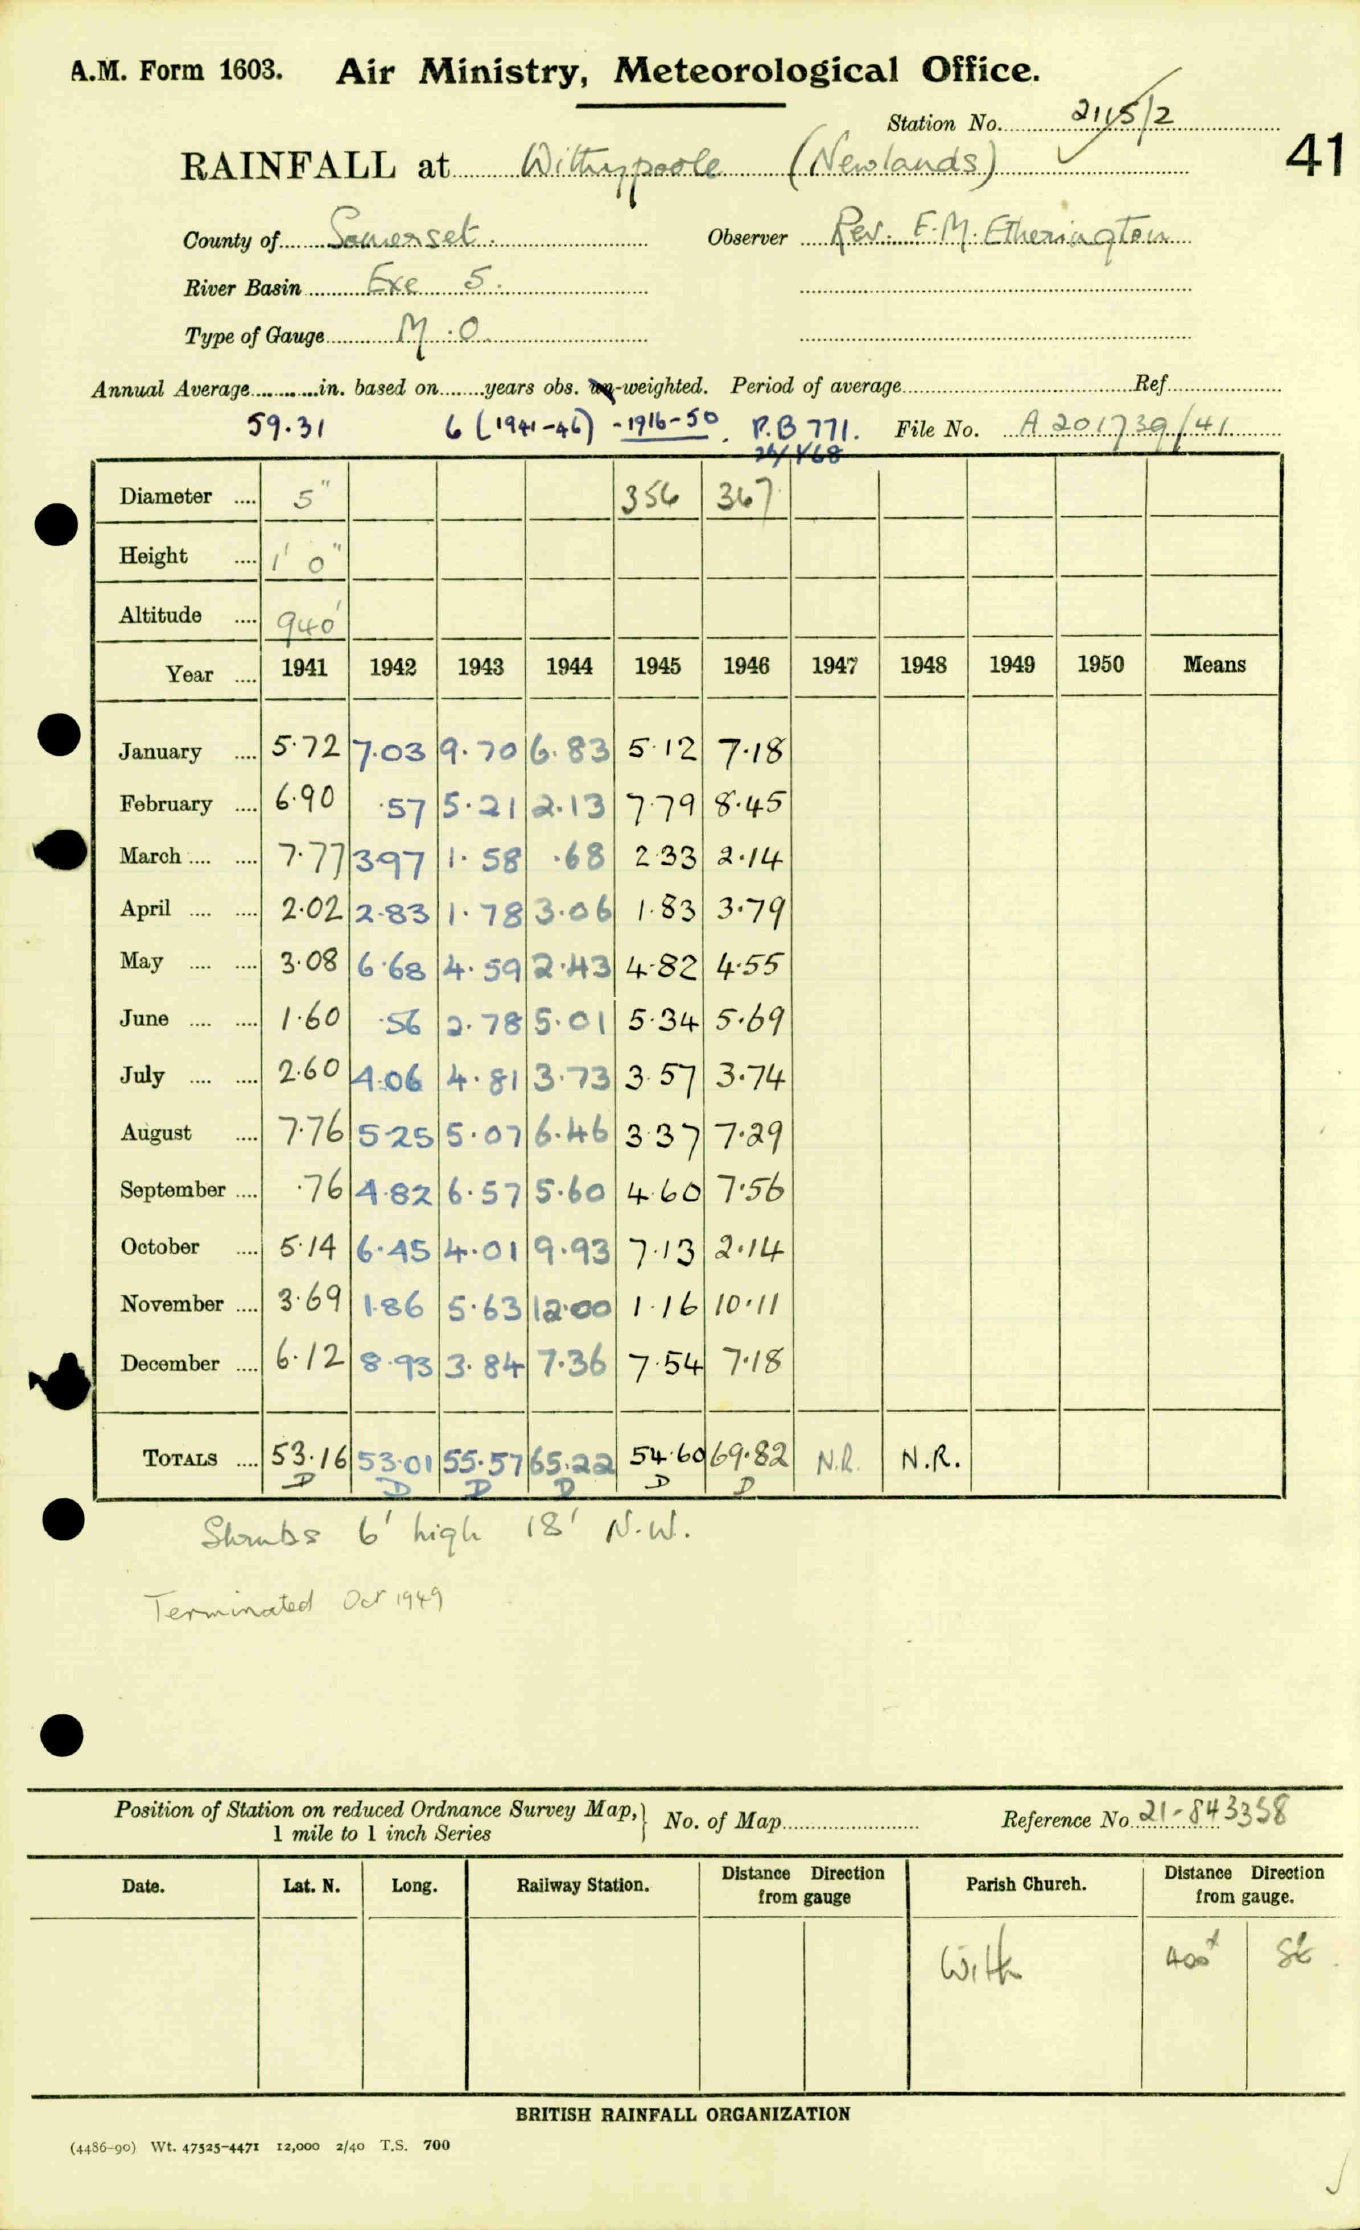 A.M. Form 1603. Air Ministry, Meteorological Office.
Station No. 2115/2
41
RAINFALL at Withypoole (Newlands)
County of Somerset. Observer Rev. E.M. Etherington
River Basin Exe 5.
Type of Gauge M.O.
Annual Average in. based on years obs. un-weighted. Period of average Ref
59.31 6 (1941-46) - 1916-50. P.B 771. File No. A 201739/41
Diameter 5" 356 367
Height 1' 0"
Altitude 940'
Year 1941 1942 1943 1944 1945 1946 1947 1948 1949 1950 Means
January 5.72 7.03 9.70 6.83 5.12 7.18
February 6.90 .57 5.21 2.13 7.79 8.45
March 7.77 3.97 1.58 .68 2.33 2.14
April 2.02 2.83 1.78 3.06 1.83 3.79
May 3.08 6.68 4.59 2.43 4.82 4.55
June 1.60 .56 2.78 5.01 5.34 5.69
July 2.60 4.06 4.81 3.73 3.57 3.74
August 7.76 5.25 5.07 6.46 3.37 7.29
September .76 4.82 6.57 5.60 4.60 7.56
October 5.14 6.45 4.01 9.93 7.13 2.14
November 3.69 1.86 5.63 12.00 1.16 10.11
December 6.12 8.93 3.84 7.36 7.54 7.18
TOTALS 53.16 53.01 55.57 65.22 54.60 69.82 N.R. N.R.
D D D D D D
Shrubs 6' high 18' N.W.
Terminated Oct 1949
Position of Station on reduced Ordnance Survey Map, 1 mile to 1 inch Series } No. of Map Reference No. 21-843358
Date. Lat. N. Long. Railway Station. Distance Direction from gauge Parish Church. Distance Direction from gauge.
With 400x SE
BRITISH RAINFALL ORGANIZATION
(4486-90) Wt. 47525-4471 12,000 2/40 T.S. 700